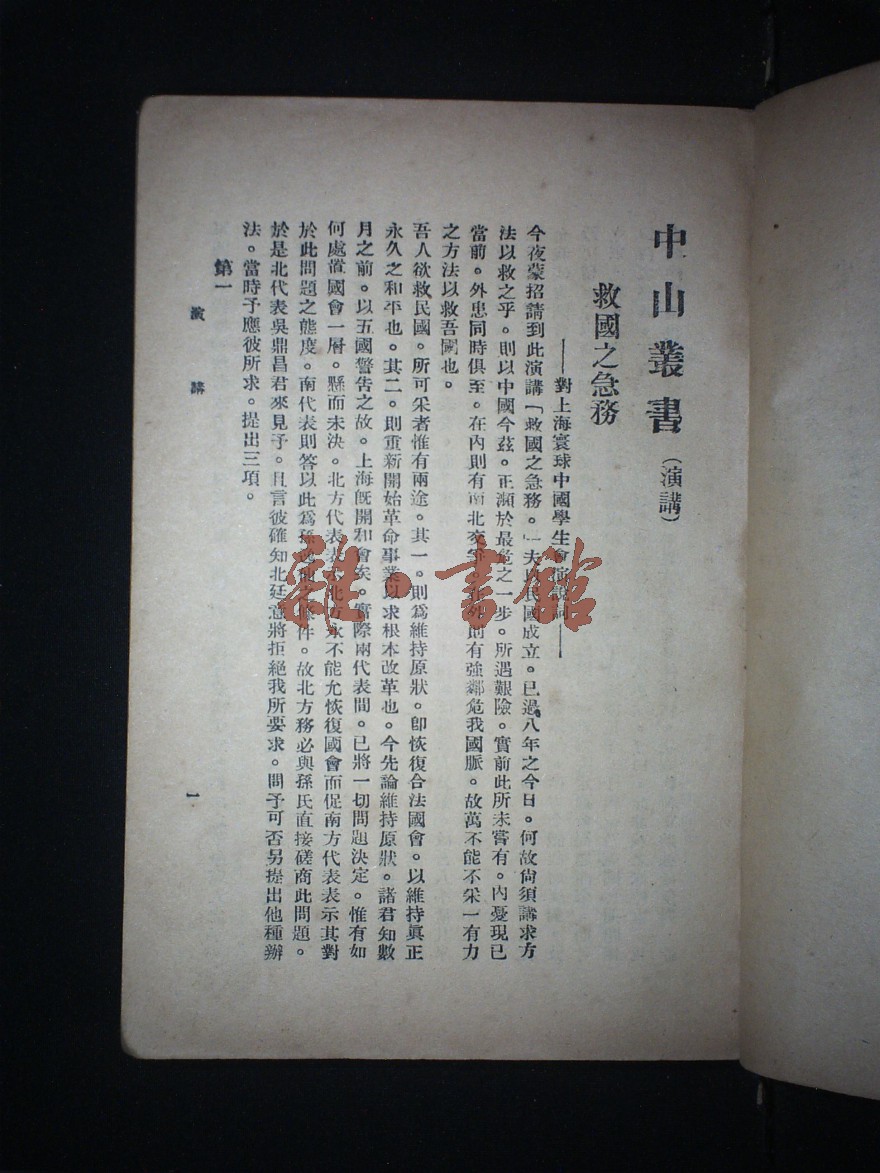 中山叢書（演講）
救國之急務
——對上海寰球中國學生會演說詞——
今夜蒙招請到此演講「救國之急務。」夫以民國成立。已過八年之今日。何故尙須講求方
法以救之乎。則以中國今茲。正瀕於最危之一步。所遇艱險。實前此所未嘗有。內憂現已
當前。外患同時俱至。在內則有南北交爭。在外則有強鄰危我國脈。故萬不能不采一有力
之方法以救吾國也。
吾人欲救民國。所可采者惟有兩途。其一。則爲維持原狀。卽恢復合法國會。以維持眞正
永久之和平也。其二。則重新開始革命事業以求根本改革也。今先論維持原狀。諸君知數
月之前。以五國警告之故。上海旣開和會矣。實際兩代表間。已將一切問題決定。惟有如
何處置國會一層。懸而未決。北方代表表示北方永不能允恢復國會而促南方代表表示其對
於此問題之態度。南代表則答以此爲孫之條件。故北方務必與孫氏直接磋商此問題。
於是北代表吳鼎昌君來見予。且言彼確知北廷意將拒絕我所要求。問予可否另提出他種辦
法。當時予應彼所求。提出三項。
第一
演講
一
雜·書館